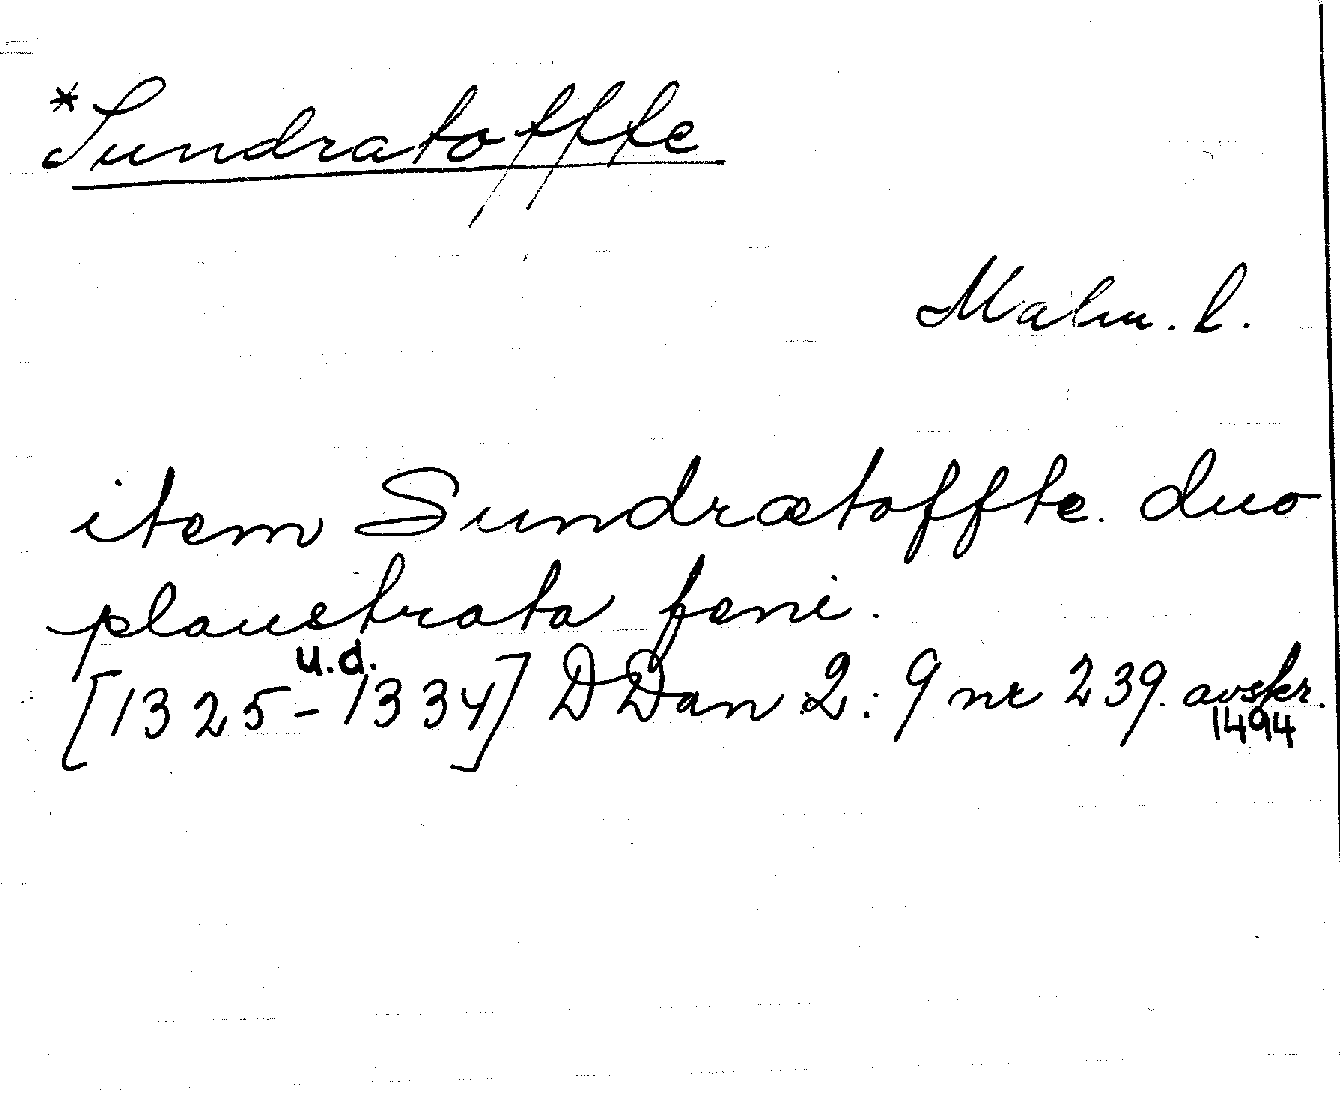 *Sundratoffte
Malm. l.
item Sundrætoffte. duo
plaustrata feni.
u.d.
[1325-1334] DDan 2: 9 nr 239. avskr.
1494